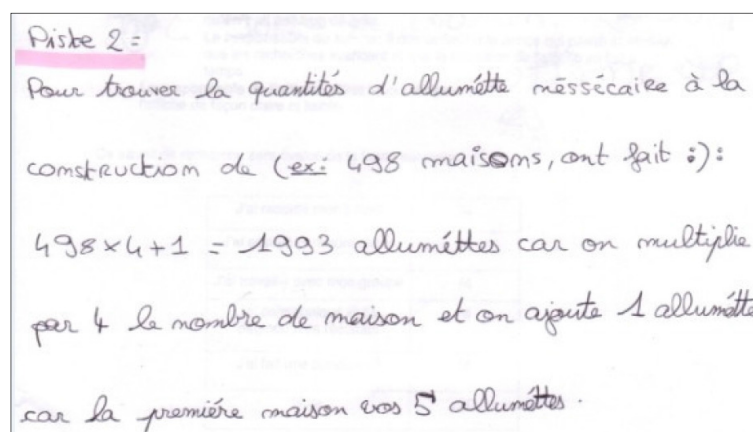 Piste 2 =
Pour trouver la quantités d'alluméttte néssécaire à la
construction de (ex: 498 maisons, ont fait :) :
498 x 4 + 1 = 1993 alluméttes car on multiplie
par 4 le nombre de maison et on ajoute 1 allumétte
car la premiére maison vos 5 alluméttes.